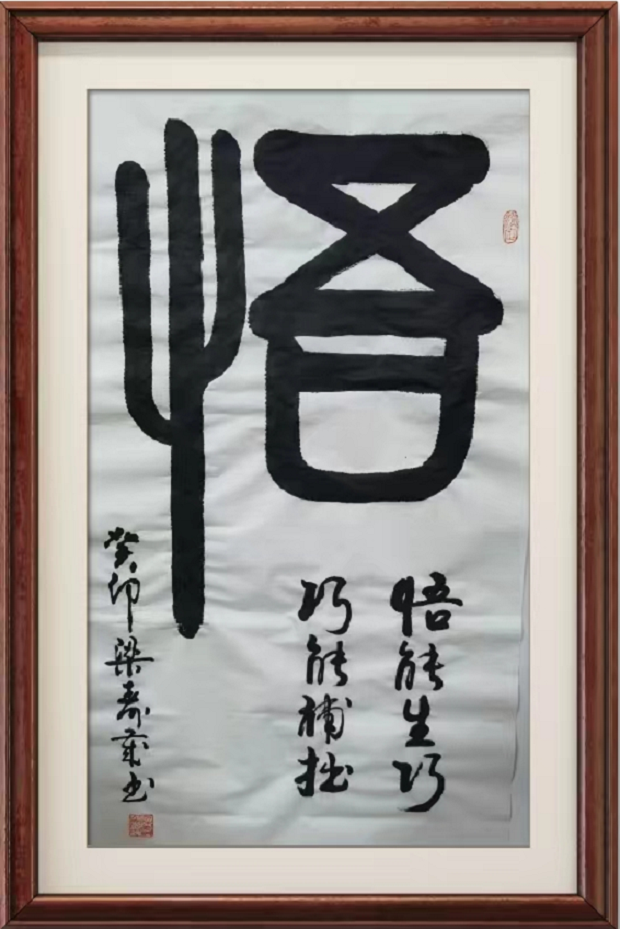 悟
悟能生巧
巧能補拙
癸卯梁寿书